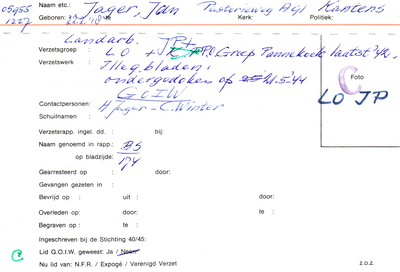 05955 Naam etc.: Jager, Jan Pastorieweg A91 Kantens
1227 Geboren: 22.2.'18 Kerk: Politiek:
Landarb. JP+
Verzetsgroep : LO + P.P. Groep Pannekoek laatst '42.
Verzetswerk : Illeg. bladen.
ondergedoken op 21.5-'44
GOIW
Contactpersonen: H Jager - C. Winter
Schuilnamen :
Foto
C
LO JP
Verzetsrapp. ingel. dd. : bij:
Naam genoemd in rapp.: BS
op bladzijde: 174
Gearresteerd op : door:
Gevangen gezeten in :
Bevrijd op : uit : door:
Overleden op: door: te :
Begraven op : te :
Ingeschreven bij de Stichting 40/45:
C Lid G.O.I.W. geweest: Ja / Neen
Nu lid van: N.F.R. / Expogé / Verenigd Verzet z.o.z.